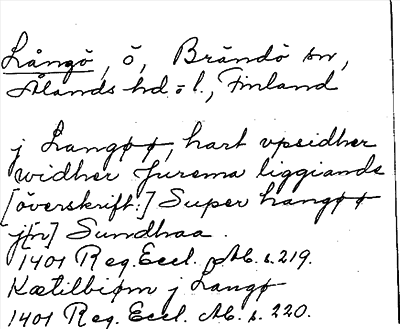 Långö, ö, Brändö sn,
Ålands hd o l., Finland
j Langøø, hart vpsidher
widher Jurema liggiande
[överskrift:] Super hangøø
j[n] Sundhaa.
1401 Reg. Eccl. Ab. s. 219.
Kætilbiørn j Langø
1401 Reg. Eccl. Ab. s. 220.